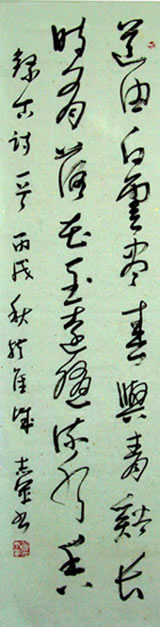 道由白雲盡春與青谿長
時有落花至遠隨流水香
錄古詩一首丙戌秋於城志書